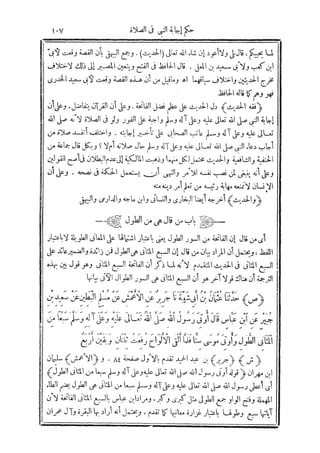 حكم إجابة النبى فى الصلاة ١٠٧
لما يحييكم، قال ولا أعود إن شاء الله تعالى (الحديث). وجمع البيهقى بأن القصة وقعت لأبى
ابن كعب ولأبى سعيد بن المعلى. قال الحافظ فى الفتح ويتعين المصير إلى ذلك لاختلاف
مخرج الحديثين واختلاف سياقهما اه وما قيل من أن هذه القصة وقعت لأبى سعيد الخدرى
فهو وهم كما قاله الحافظ
(فقه الحديث) دل الحديث على عظم فضل الفاتحة. وعلى أن القرآن يتفاضل. وعلى أن
إجابة النبى صلى الله تعالى عليه وعلى آله وسلم واجبة على الفور ولو فى الصلاة لأنه صلى الله
تعالى عليه وعلى آله وسلم عاتب الصحابى على تأخير إجابته. واختلف أتفسد صلاة من
أجاب دعاء النبى صلى الله تعالى عليه وعلى آله وسلم حال صلاته أم لا؟ وبكل قال جماعة من
الحنفية والشافعية والحديث محتمل لكل منهما وذهبت المالكية إلى عدم البطلان فى أصح القولين
وعلى أنه ينبغى لمن نصب نفسه للأمر والنهى أن يستعمل الحكمة فى نصحه. وعلى أن
الإنسان لا تمنعه مهابة رئيسه من تعلم أمر دينه منه
(والحديث) أخرجه أيضا البخارى والنسائى وابن ماجه والدارمى والبيهقى
باب من قال هى من الطول
أى من قال إن الفاتحة من السور الطول يعنى باعتبار اشتمالها على المعانى الطويلة لا باعتبار
اللفظ، ويحتمل أن المراد بيان من قال إن السبع المثانى هى الطول فمن زائدة والضمير عائد على
السبع المثانى فى الحديث المتقدم لأنه لما ذكر أن الفاتحة السبع المثانى وهو قول بين بهذه
الترجمة أن هناك قولا آخر هو أن السبع المثانى هى السور الطوال الآتى بيانها
(ص) حَدَّثَنَا عُثْمَانُ بْنُ أَبِي شَيْبَةَ نَا جَرِيرٌ عَنِ الْأَعْمَشِ عَنْ مُسْلِمٍ الْبَطِينِ عَنْ سَعِيدِ بْنِ
جُبَيْرٍ عَنِ ابْنِ عَبَّاسٍ قَالَ أُوتِيَ رَسُولُ اللهِ صَلَّى اللهُ تَعَالَى عَلَيْهِ وَعَلَى آلِهِ وَسَلَّمَ سَبْعًا مِنَ
الْمَثَانِي الطُّوَلِ وَأُوتِيَ مُوسَى سِتًّا فَلَمَّا أَلْقَى الْأَلْوَاحَ رُفِعَتْ ثِنْتَانِ وَبَقِينَ أَرْبَعٌ
(ش) (جرير) بن عبد الحميد تقدم بالأول صفحة ٨٤. و (الأعمش) سليمان
ابن مهران (قوله أوتى رسول الله صلى الله تعالى عليه وعلى آله وسلم سبعا من المثانى الطول)
أى أعطى رسول الله صلى الله تعالى عليه وعلى آله وسلم سبعا من المثانى هى الطول بضم الطاء
المهملة وفتح الواو جمع الطولى مثل كبرى وكبر، ومراد ابن عباس بالسبع المثانى الفاتحة لأن
آياتها سبع وطولها باعتبار غزارة معانيها كما تقدم. ويحتمل أنه أراد بها البقرة وآل عمران